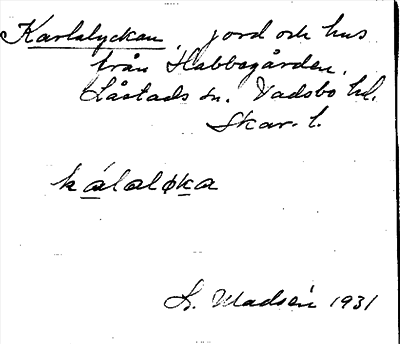 Karlalyckan, jord och hus
från Habbagården,
Låstads sn. Vadsbo hd.
Skar. l.
kálaløka
L. Madsén 1931